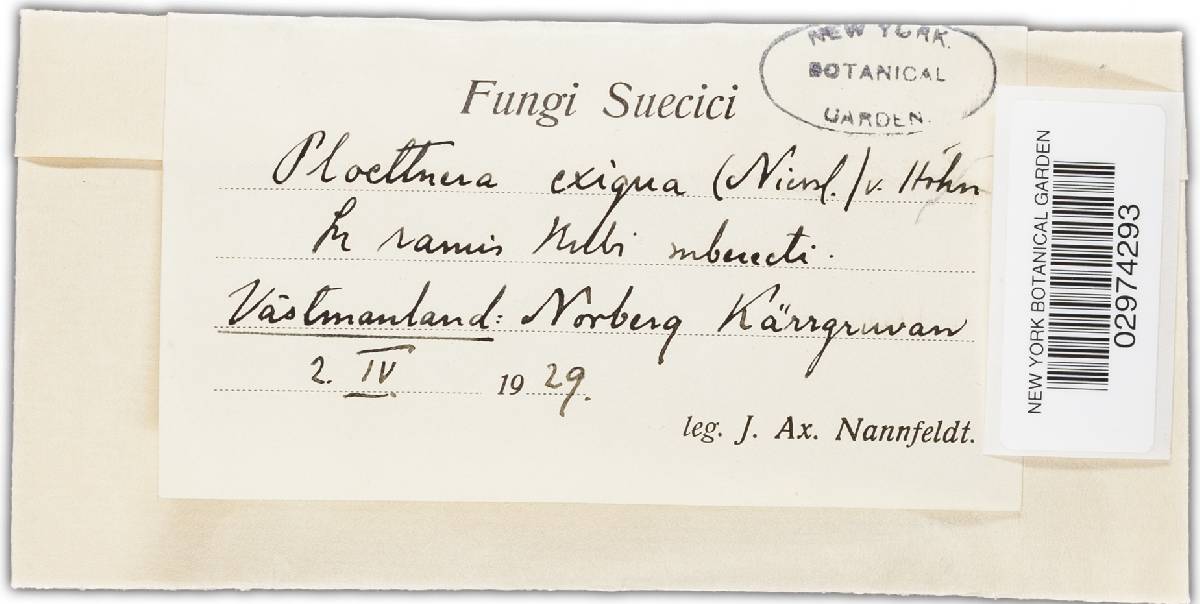 NEW YORK
BOTANICAL
GARDEN.
Fungi Suecici
Ploettnera exigua (Niessl.) v. Höhn
In ramis Rubi suberecti.
Västmanland: Norberg Kärrgruvan
2. IV 1929.
leg. J. Ax. Nannfeldt.
NEW YORK BOTANICAL GARDEN
02974293